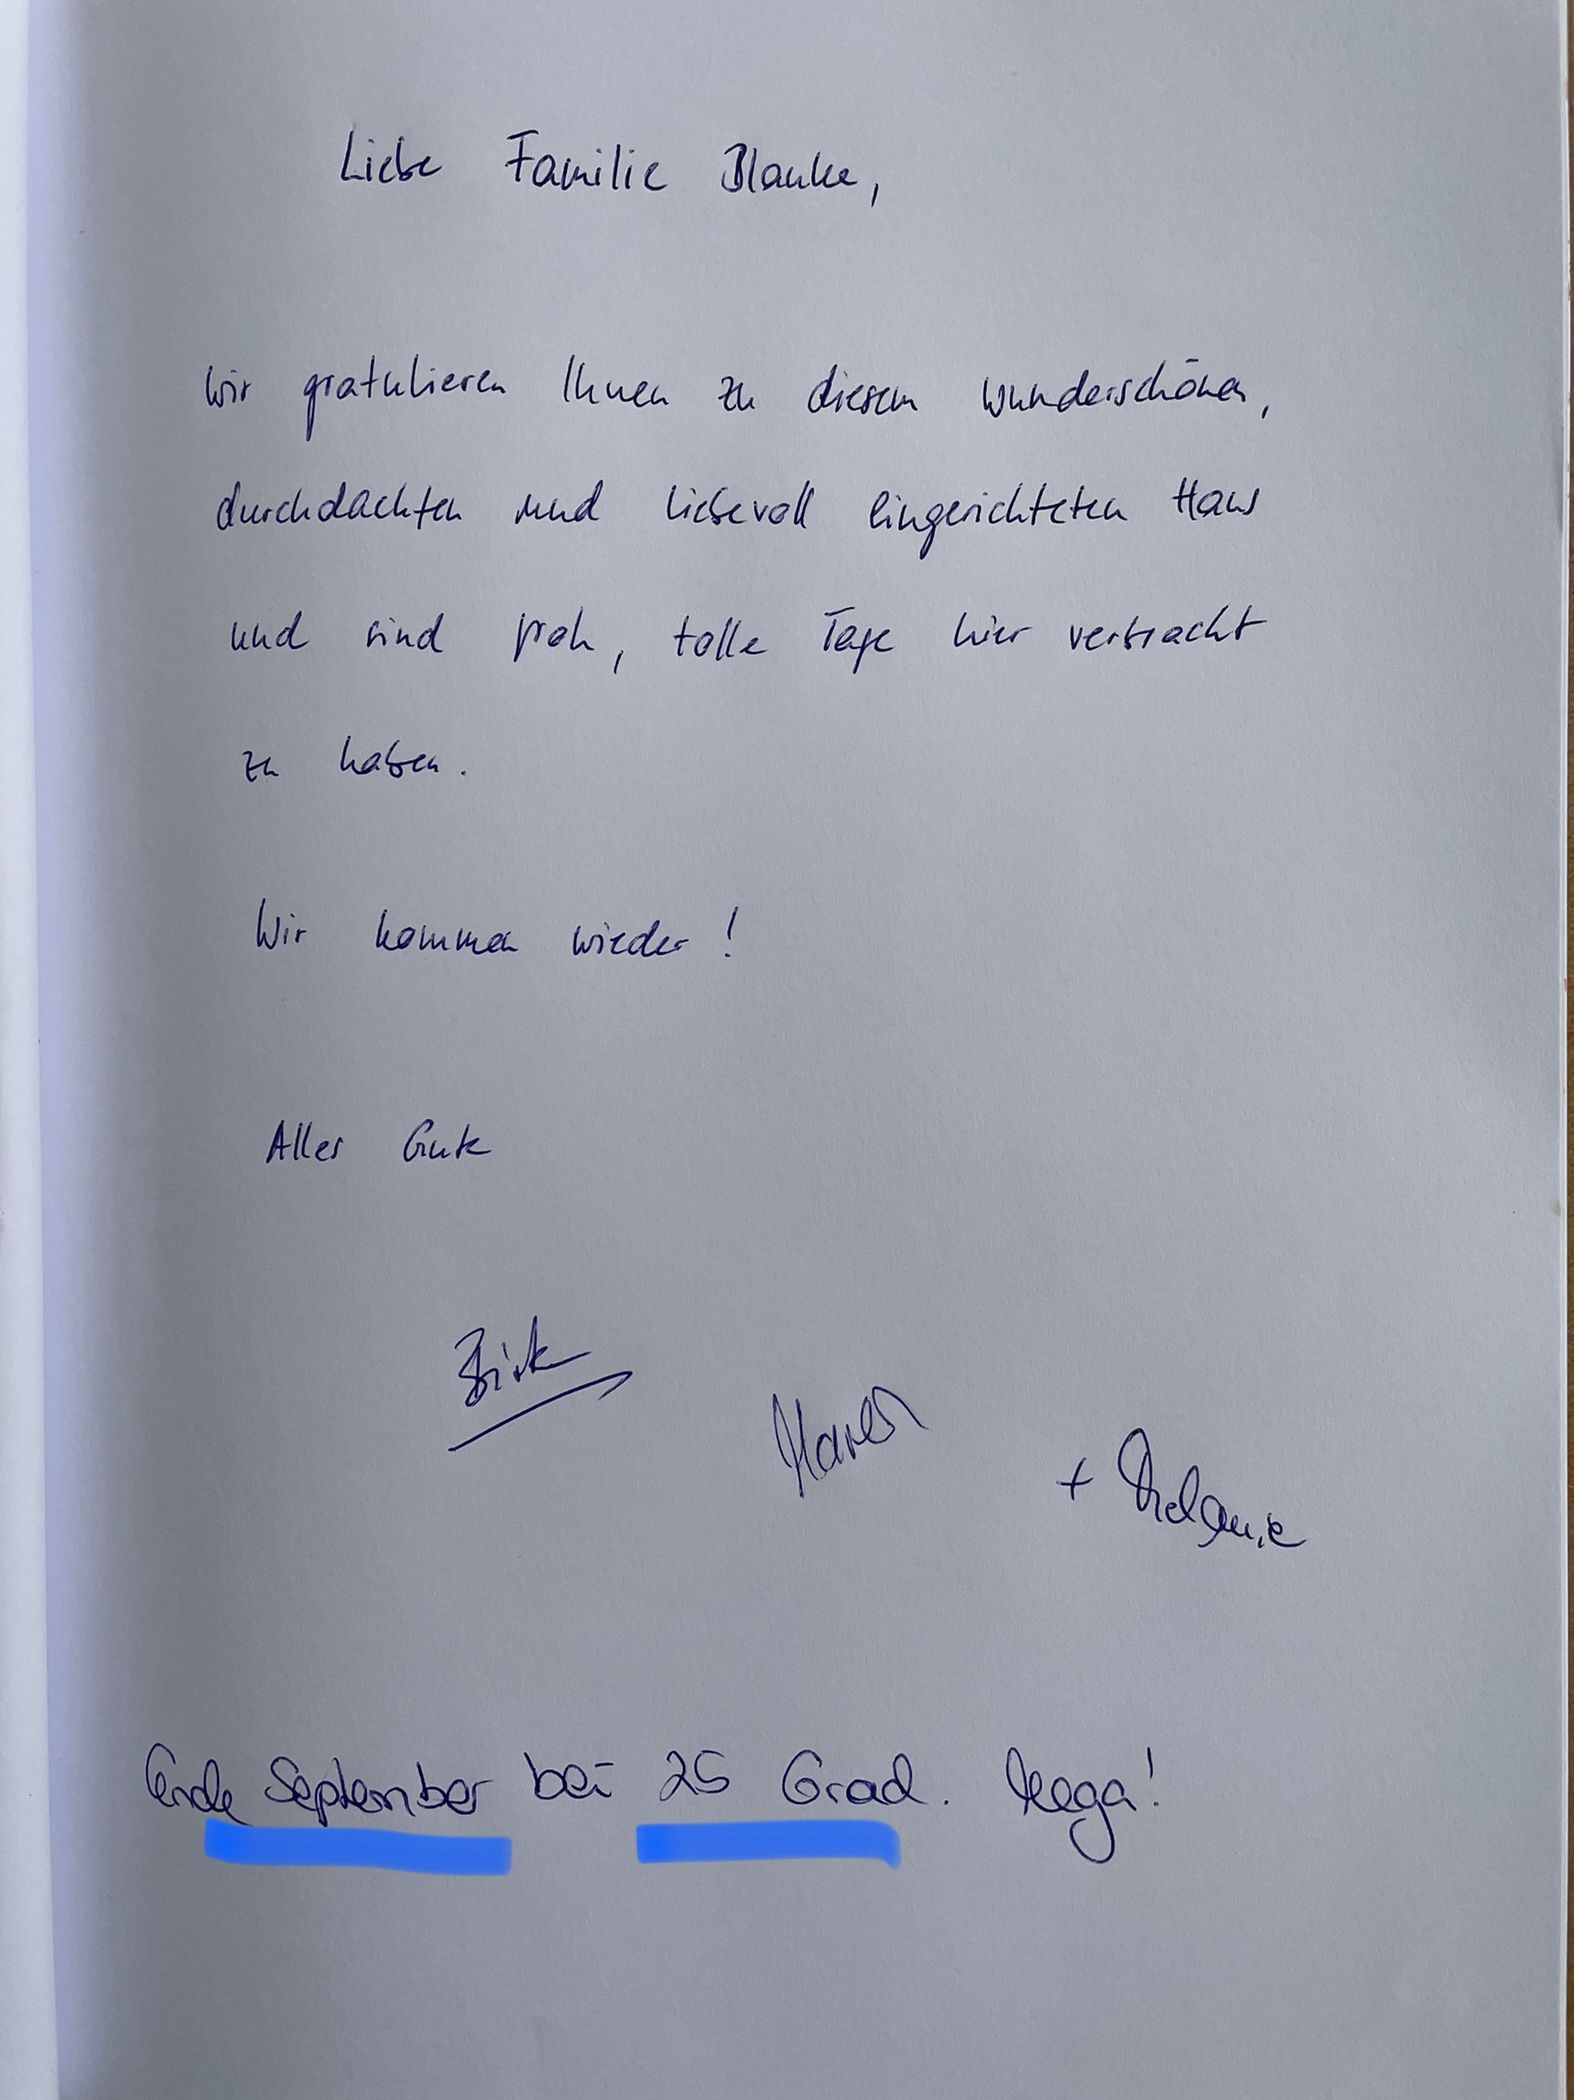 Liebe Familie Blanke,
wir gratulieren Ihnen zu diesem wunderschönen,
durchdachten und liebevoll eingerichteten Haus
und sind froh, tolle Tage hier verbracht
zu haben.
Wir kommen wieder!
Alles Gute
Birk
Maren
+ Melanie
Ende September bei 25 Grad. Mega!